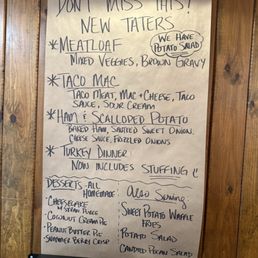 DON'T MISS THIS!
NEW TATERS
WE HAVE
POTATO SALAD
*MEATLOAF
MIXED VEGGIES, BROWN GRAVY
*TACO MAC
TACO MEAT, MAC + CHEESE, TACO
SAUCE, SOUR CREAM
*HAM & SCALLOPED POTATO
BAKED HAM, SAUTEED SWEET ONION,
CHEESE SAUCE, FRIZZLED ONIONS
*TURKEY DINNER
NOW INCLUDES STUFFING
DESSERTS-ALL
HOMEMADE:
·CHEESECAKE
·COCONUT CREAM PIE
·PEANUT BUTTER PIE
·SUMMER BERRY CRISP
ALSO SERVING
·SWEET POTATO WAFFLE
FRIES
·POTATO SALAD
·CANDIED PECAN SALAD